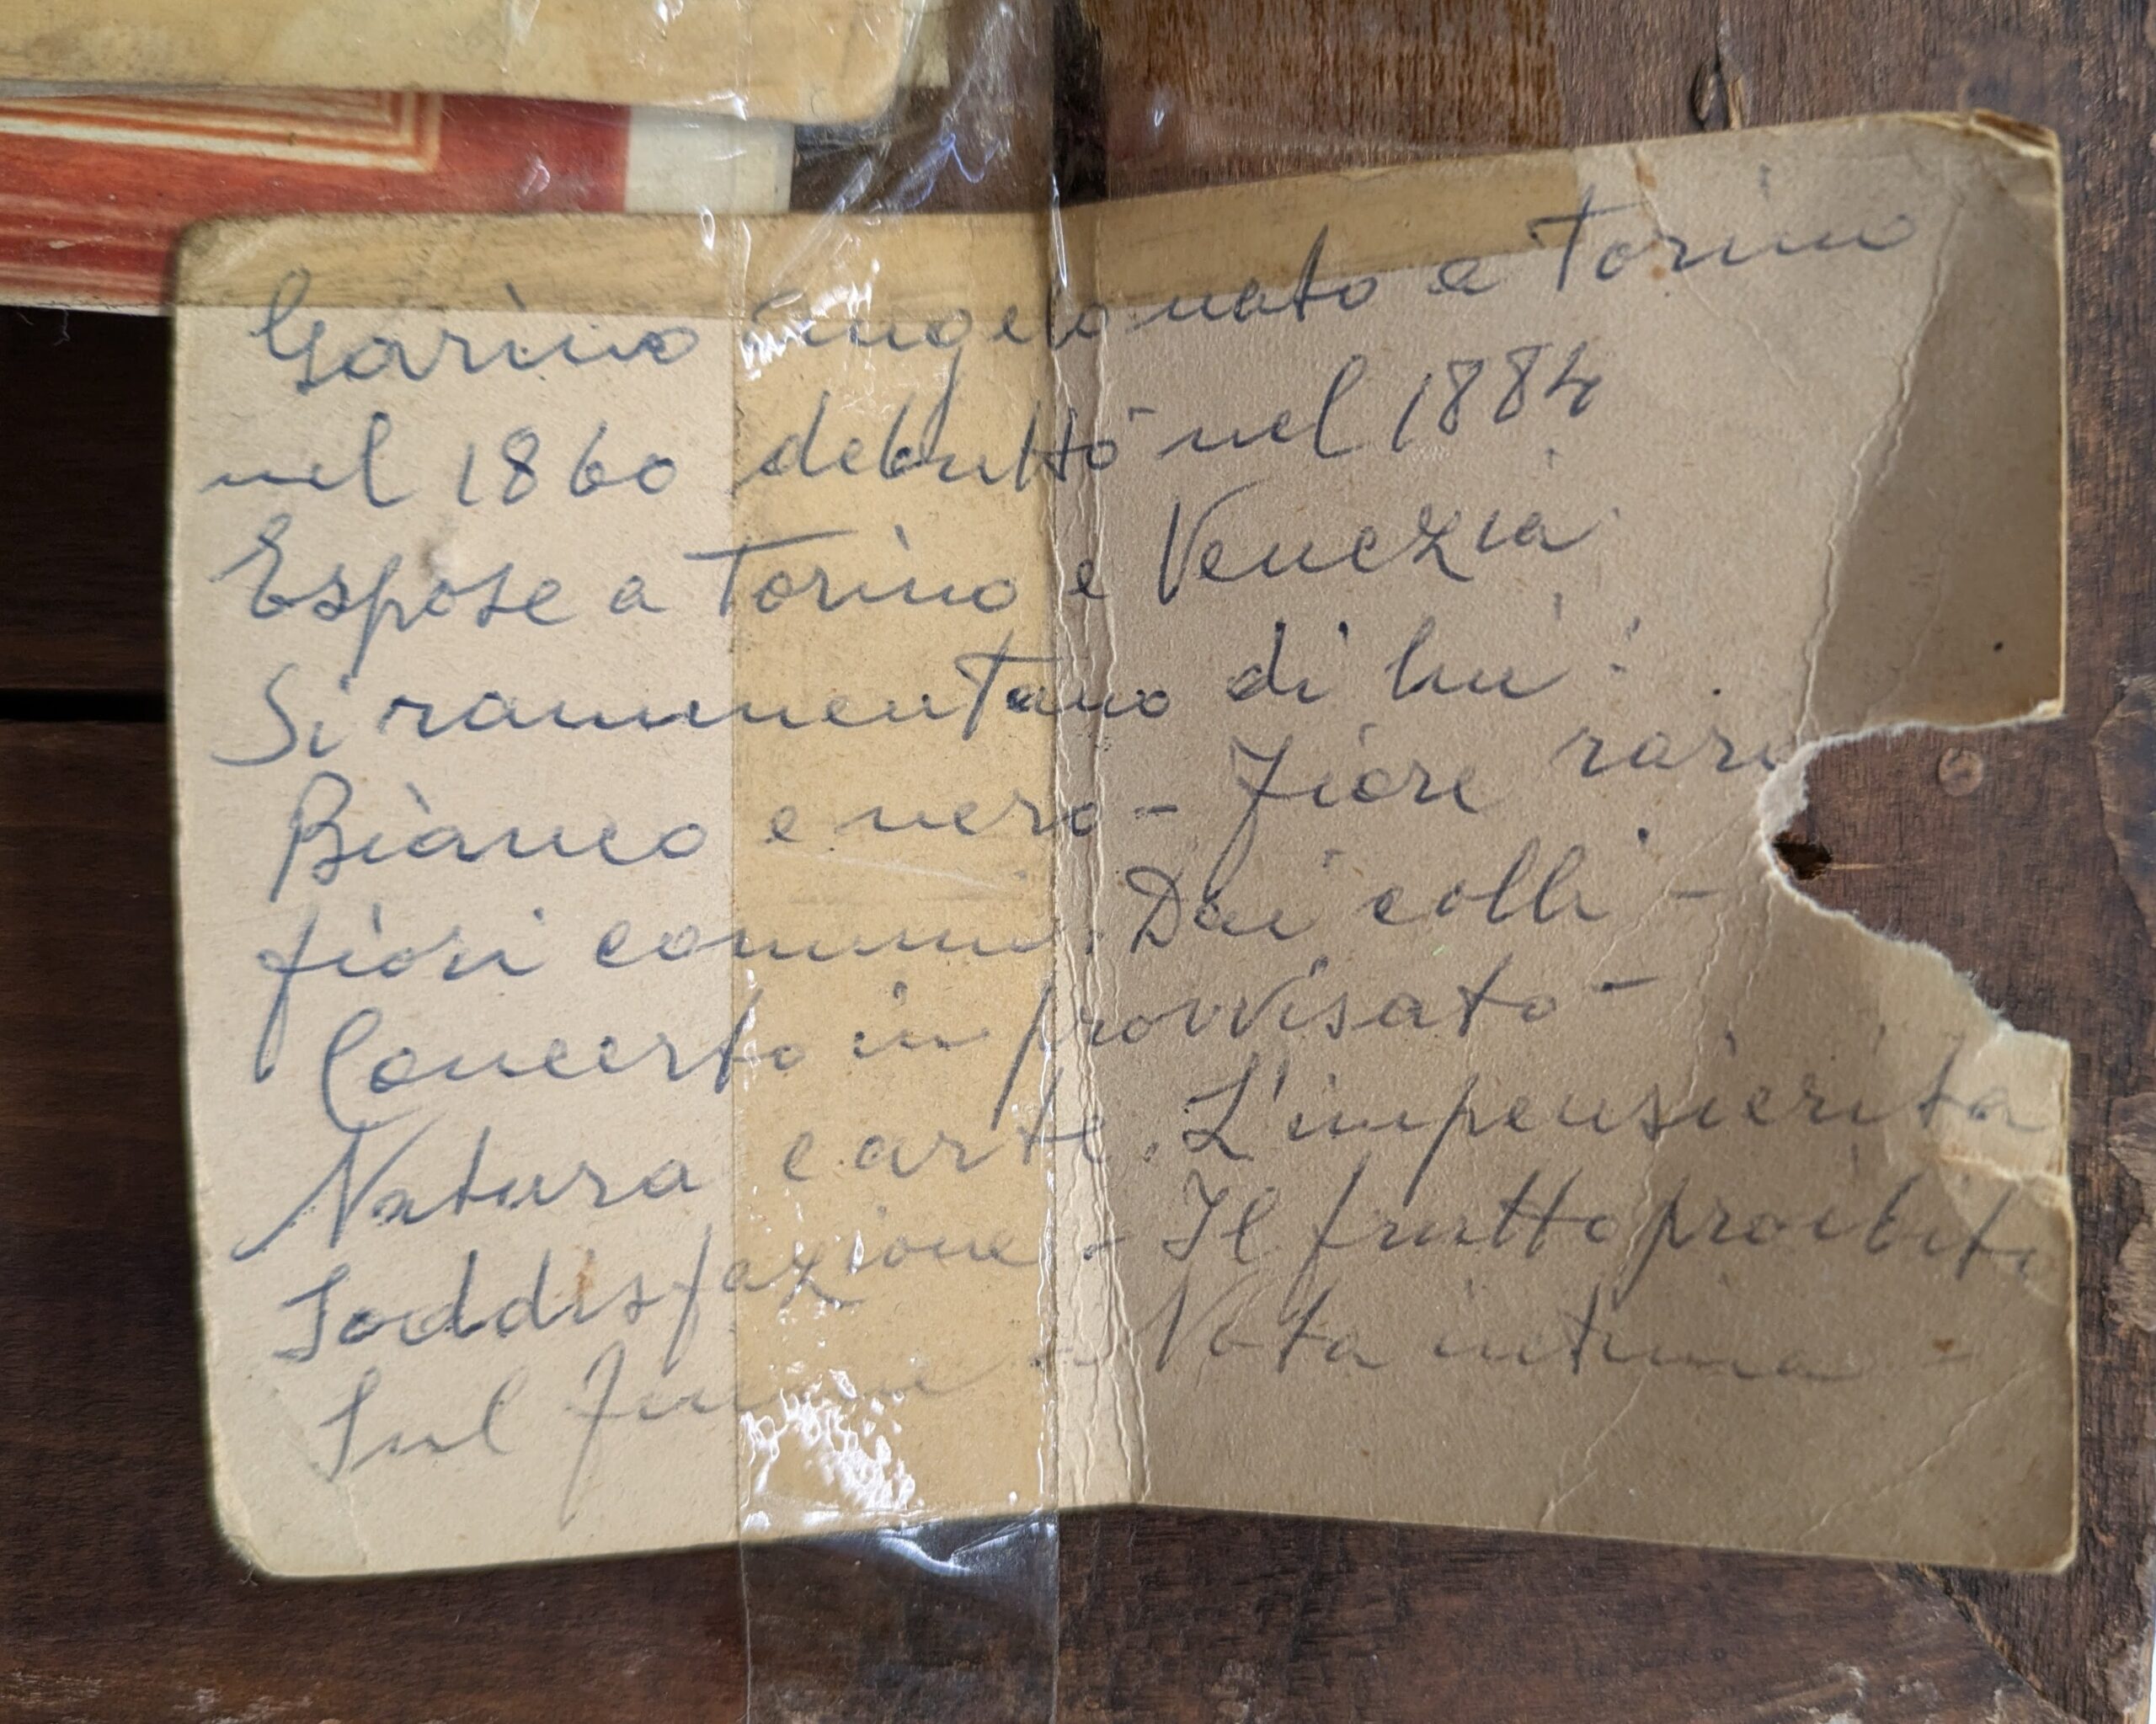 Garino Angelo nato a Torino
nel 1860 debuttò nel 1884
Espose a Torino e Venezia
Si rammentano di lui:
Bianco e nero - Fiore raro
fiori comuni. Dai colli -
Concerto in provvisato -
Natura e arte. L'impensierita
Soddisfazione - Il frutto proibito
Sul fiume - Nota intima -